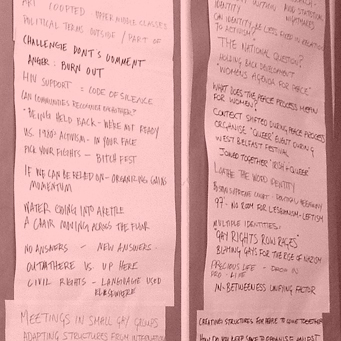 ART COOPTED UPPER MIDDLE CLASSES
POLITICAL TERMS OUTSIDE / PART OF
CHALLENGE DON'T COMMENT
ANGER. BURN OUT
HIV SUPPORT = CODE OF SILENCE
CAN COMMUNITIES RECOGNISE EACHOTHER?
"BEING HELD BACK - WE'RE NOT READY
US / AND ACTIVISM - IN YOUR FACE
PICK YOUR FIGHTS - BITCH FEST
IF WE CAN BE RELIED ON - ORGANISING GAINS
MOMENTUM
WATER GOING INTO A KETTLE
A CHAIR MOVING ACROSS THE FLOOR
NO ANSWERS - NEW ANSWERS -
OUT THERE VS UP HERE
CIVIL RIGHTS - LANGUAGE USED
ELSEWHERE
MEETINGS IN SMALL GAY GROUPS
ADAPTING STRUCTURES FROM
IDENTITY
CAN IDENTITY BE LESS FIXED IN RELATION
TO ACTIVISM?
THE NATIONAL QUESTION?
HOLDING BACK DEVELOPMENT
"WOMEN'S AGENDA FOR PEACE"
WHAT DOES THE PEACE PROCESS MEAN
FOR WOMEN?
CONTEXT SHIFTED DURING PEACE PROCESS
ORGANISE "QUEER" EVENT DURING
WEST BELFAST FESTIVAL
JOINED TOGETHER "IRISH + QUEER"
LOATHE THE WORD IDENTITY
97 - NO ROOM FOR LESBIANISM - LEFTISM
MULTIPLE IDENTITIES
"GAY RIGHTS ROW RAGES"
BLAMING GAYS FOR THE RISE OF NAZISM
PRECIOUS LIFE - DROP IN
PRO-LIFE
IN-BETWEENESS UNIFYING FACTOR
CREATING STRUCTURES FOR PEOPLE TO COME TOGETHER
HOW DO WE KEEP SANE TO ORGANISE AN EVENT